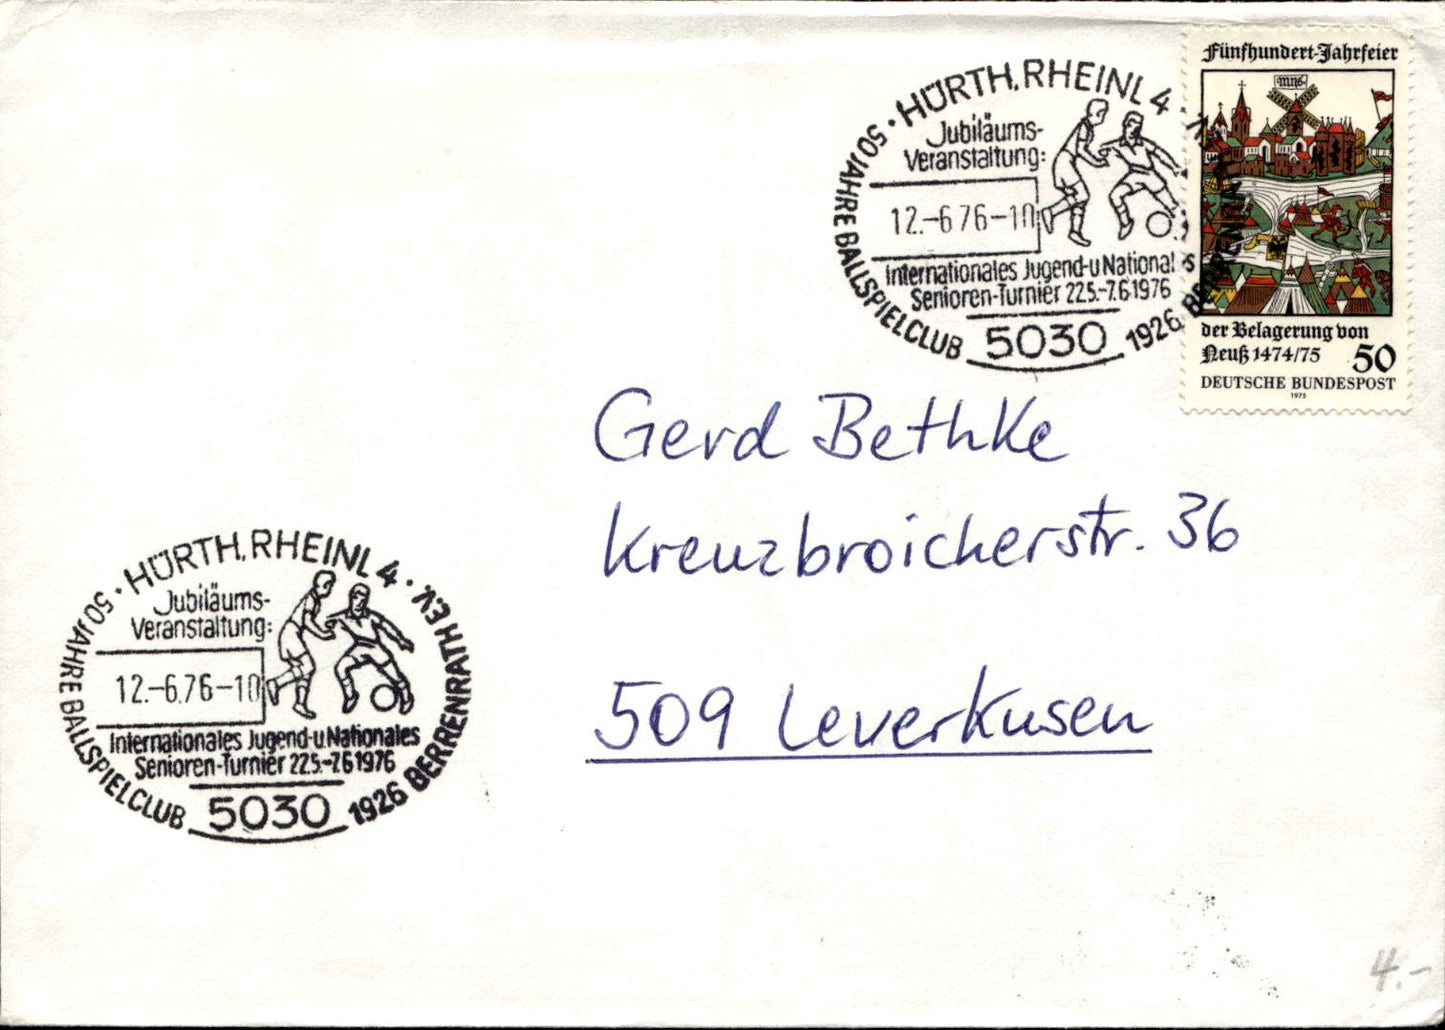 HÜRTH, RHEINL 4 ·
50 JAHRE BALLSPIELCLUB 1926
Jubiläums-
Veranstaltung:
12.-6.76-10
Internationales Jugend-u National s
Senioren-Turnier 22.5.-7.6.1976
5030
Fünfhundert-Jahrfeier
der Belagerung von
Neuß 1474/75 50
DEUTSCHE BUNDESPOST
1975
Gerd Bethke
Kreuzbroicherstr. 36
509 Leverkusen
50 JAHRE BALLSPIELCLUB 1926 BERRENRATH E.V.
· HÜRTH, RHEINL 4 ·
Jubiläums-
Veranstaltung:
12.-6.76-10
Internationales Jugend-u.Nationales
Senioren-Turnier 22.5.-7.6.1976
5030
4.-